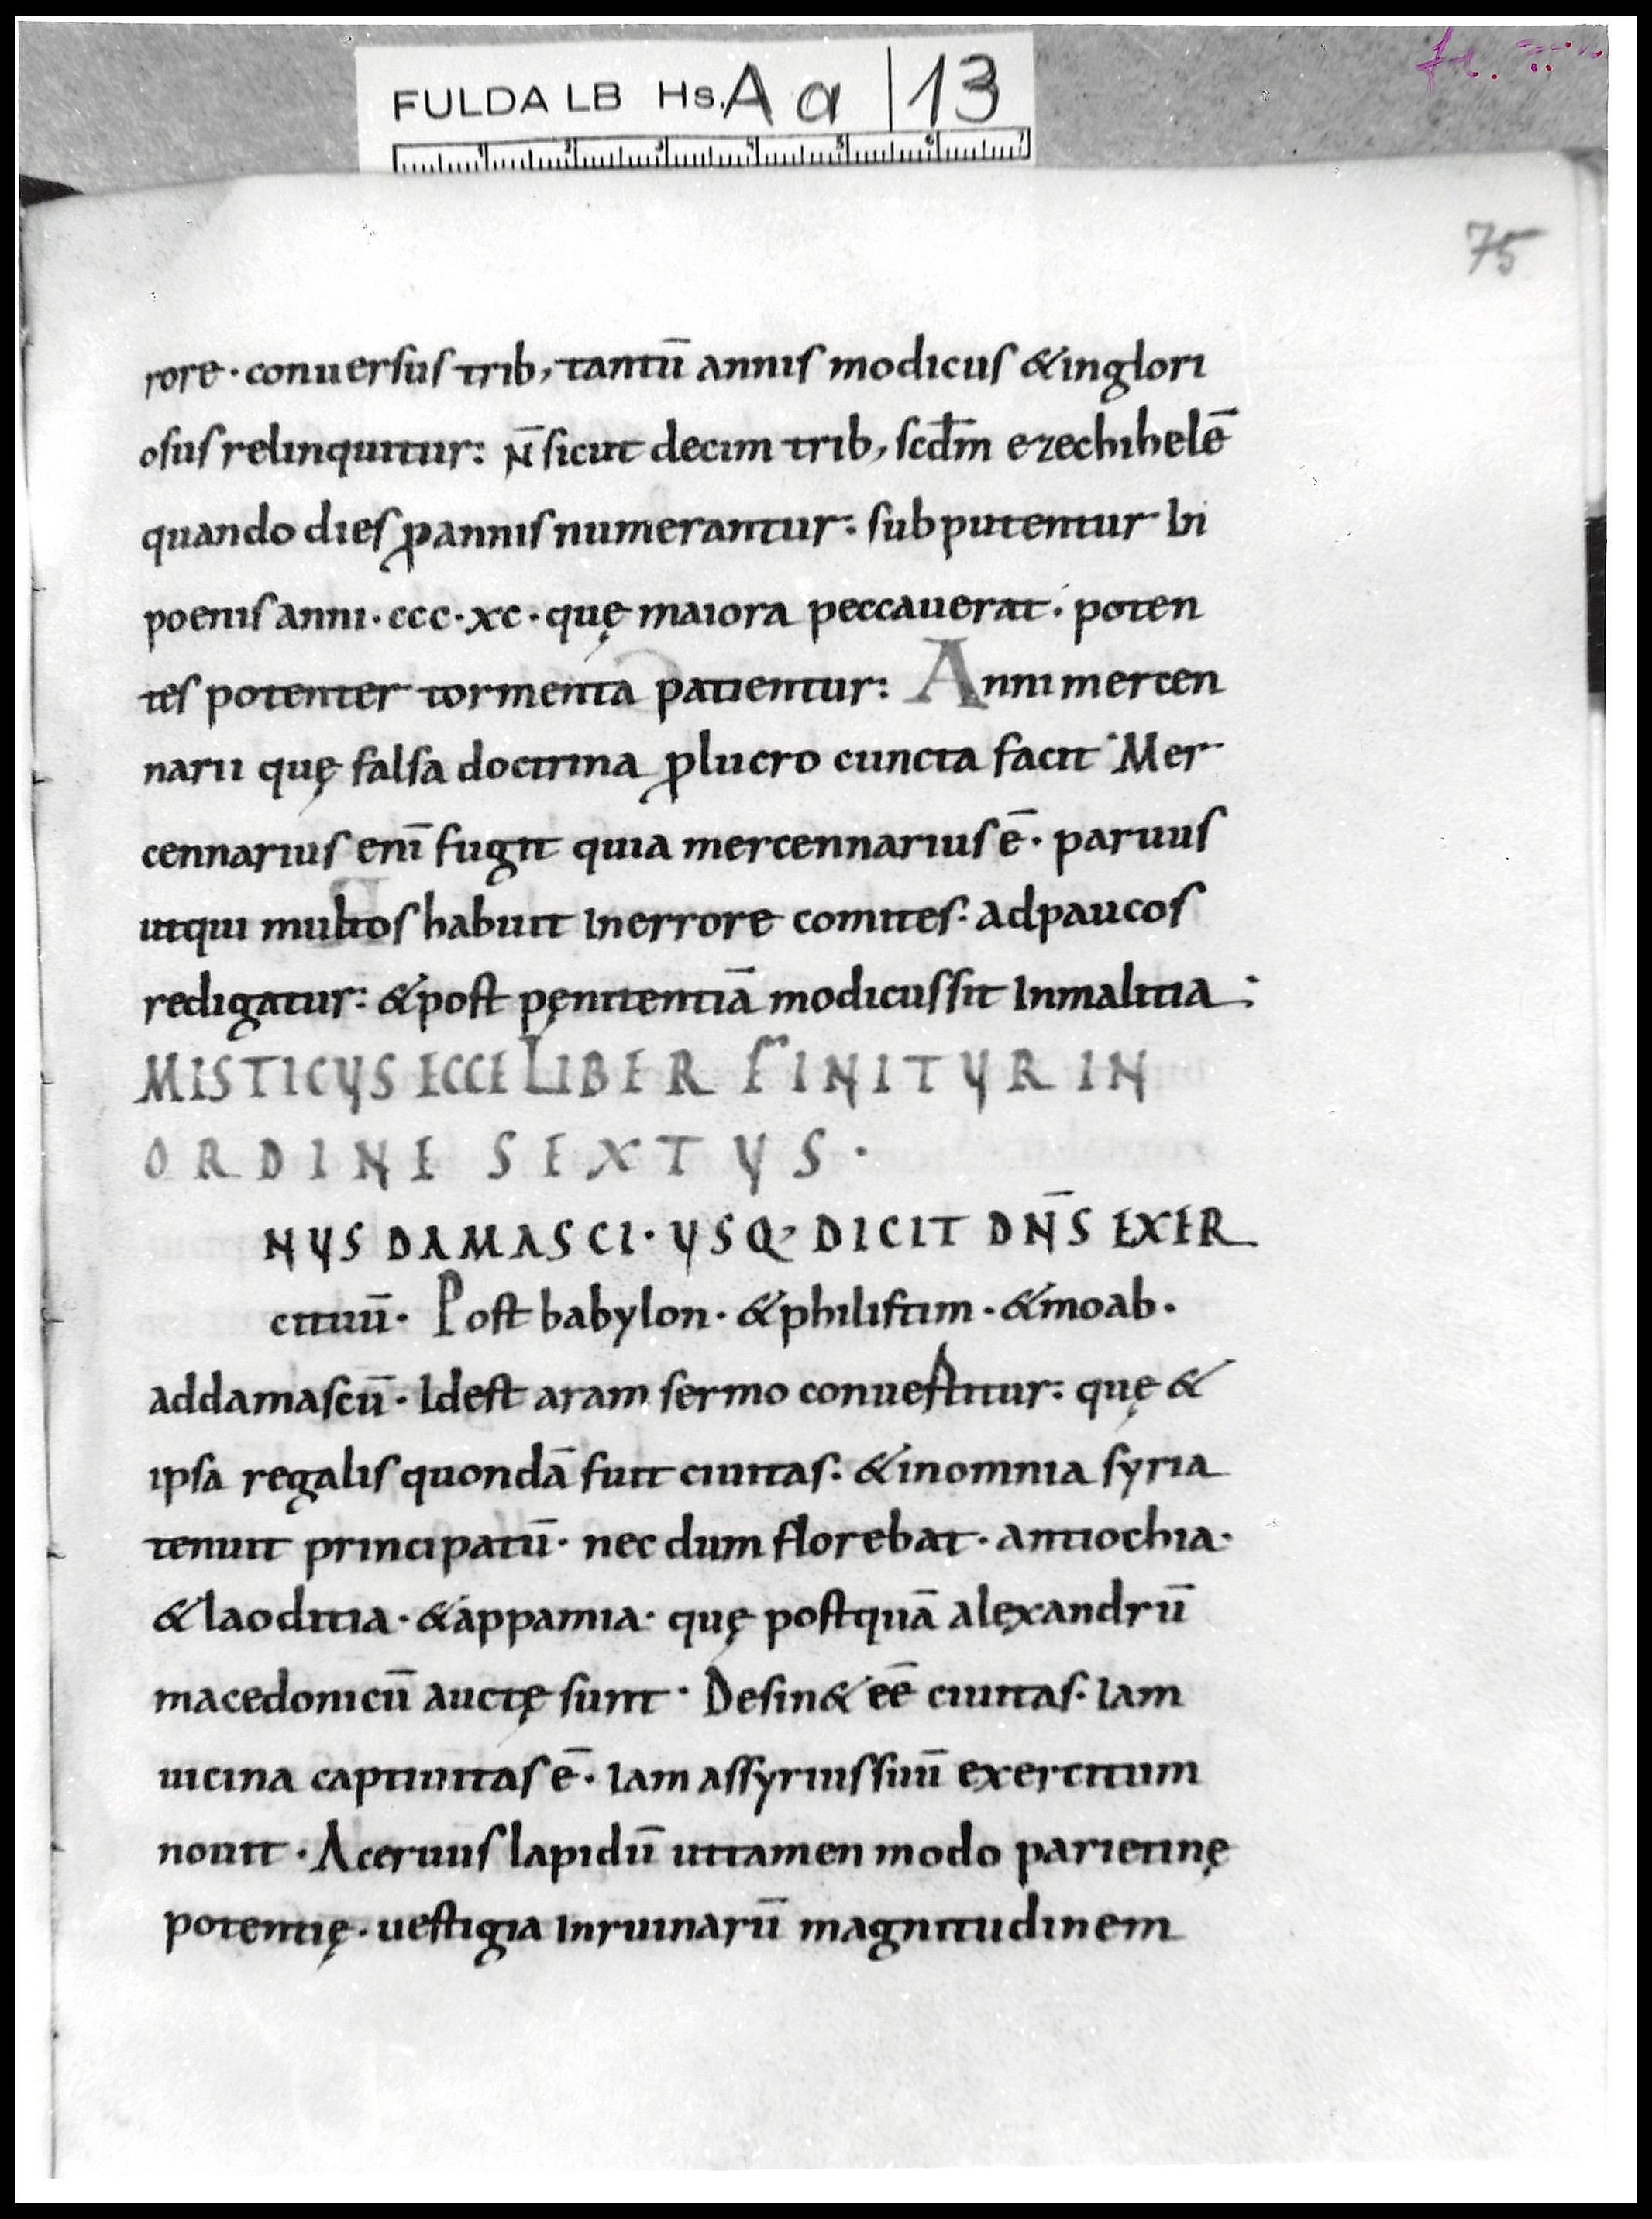 FULDA LB Hs. Aa 13
75
rore · conuersus trib, tantū annis modicus & inglori
osus relinquitur: N̄ sicut decim trib, scdm̄ ezechihelē
quando dies ꝓ annis numerantur: subputentur hi
poenis anni · ccc · xc · quę maiora peccauerat · poten
tes potenter tormenta patientur: Anni mercen
narii quę falsa doctrina ꝓ lucro cuncta facit · Mer
cennarius enī fugit quia mercennarius ē · paruus
ut qui multos habuit in errore comites · ad paucos
redigatur: & post pęnitentiā modicus sit in malitia :
MISTICUS ECCE LIBER FINITUR IN
ORDINE SEXTUS ·
NUS DAMASCI · USQ· DICIT DN̄S EXER
cituū · Post babylon · & philistim · & moab ·
ad damascū · Id est aram sermo conuertitur: quę &
ipsa regalis quondā fuit ciuitas · & in omnia syria
tenuit principatū · nec dum florebat · antiochia ·
& laoditia · & appamia · quę postquā alexandrū
macedonicū auctę sunt · Desin& eē ciuitas · Iam
uicina captiuitas ē · Iam assyrius suū exercitum
nouit · Aceruus lapidū ut tamen modo parietinę
potentię · uestigia in ruinarū magnitudinem